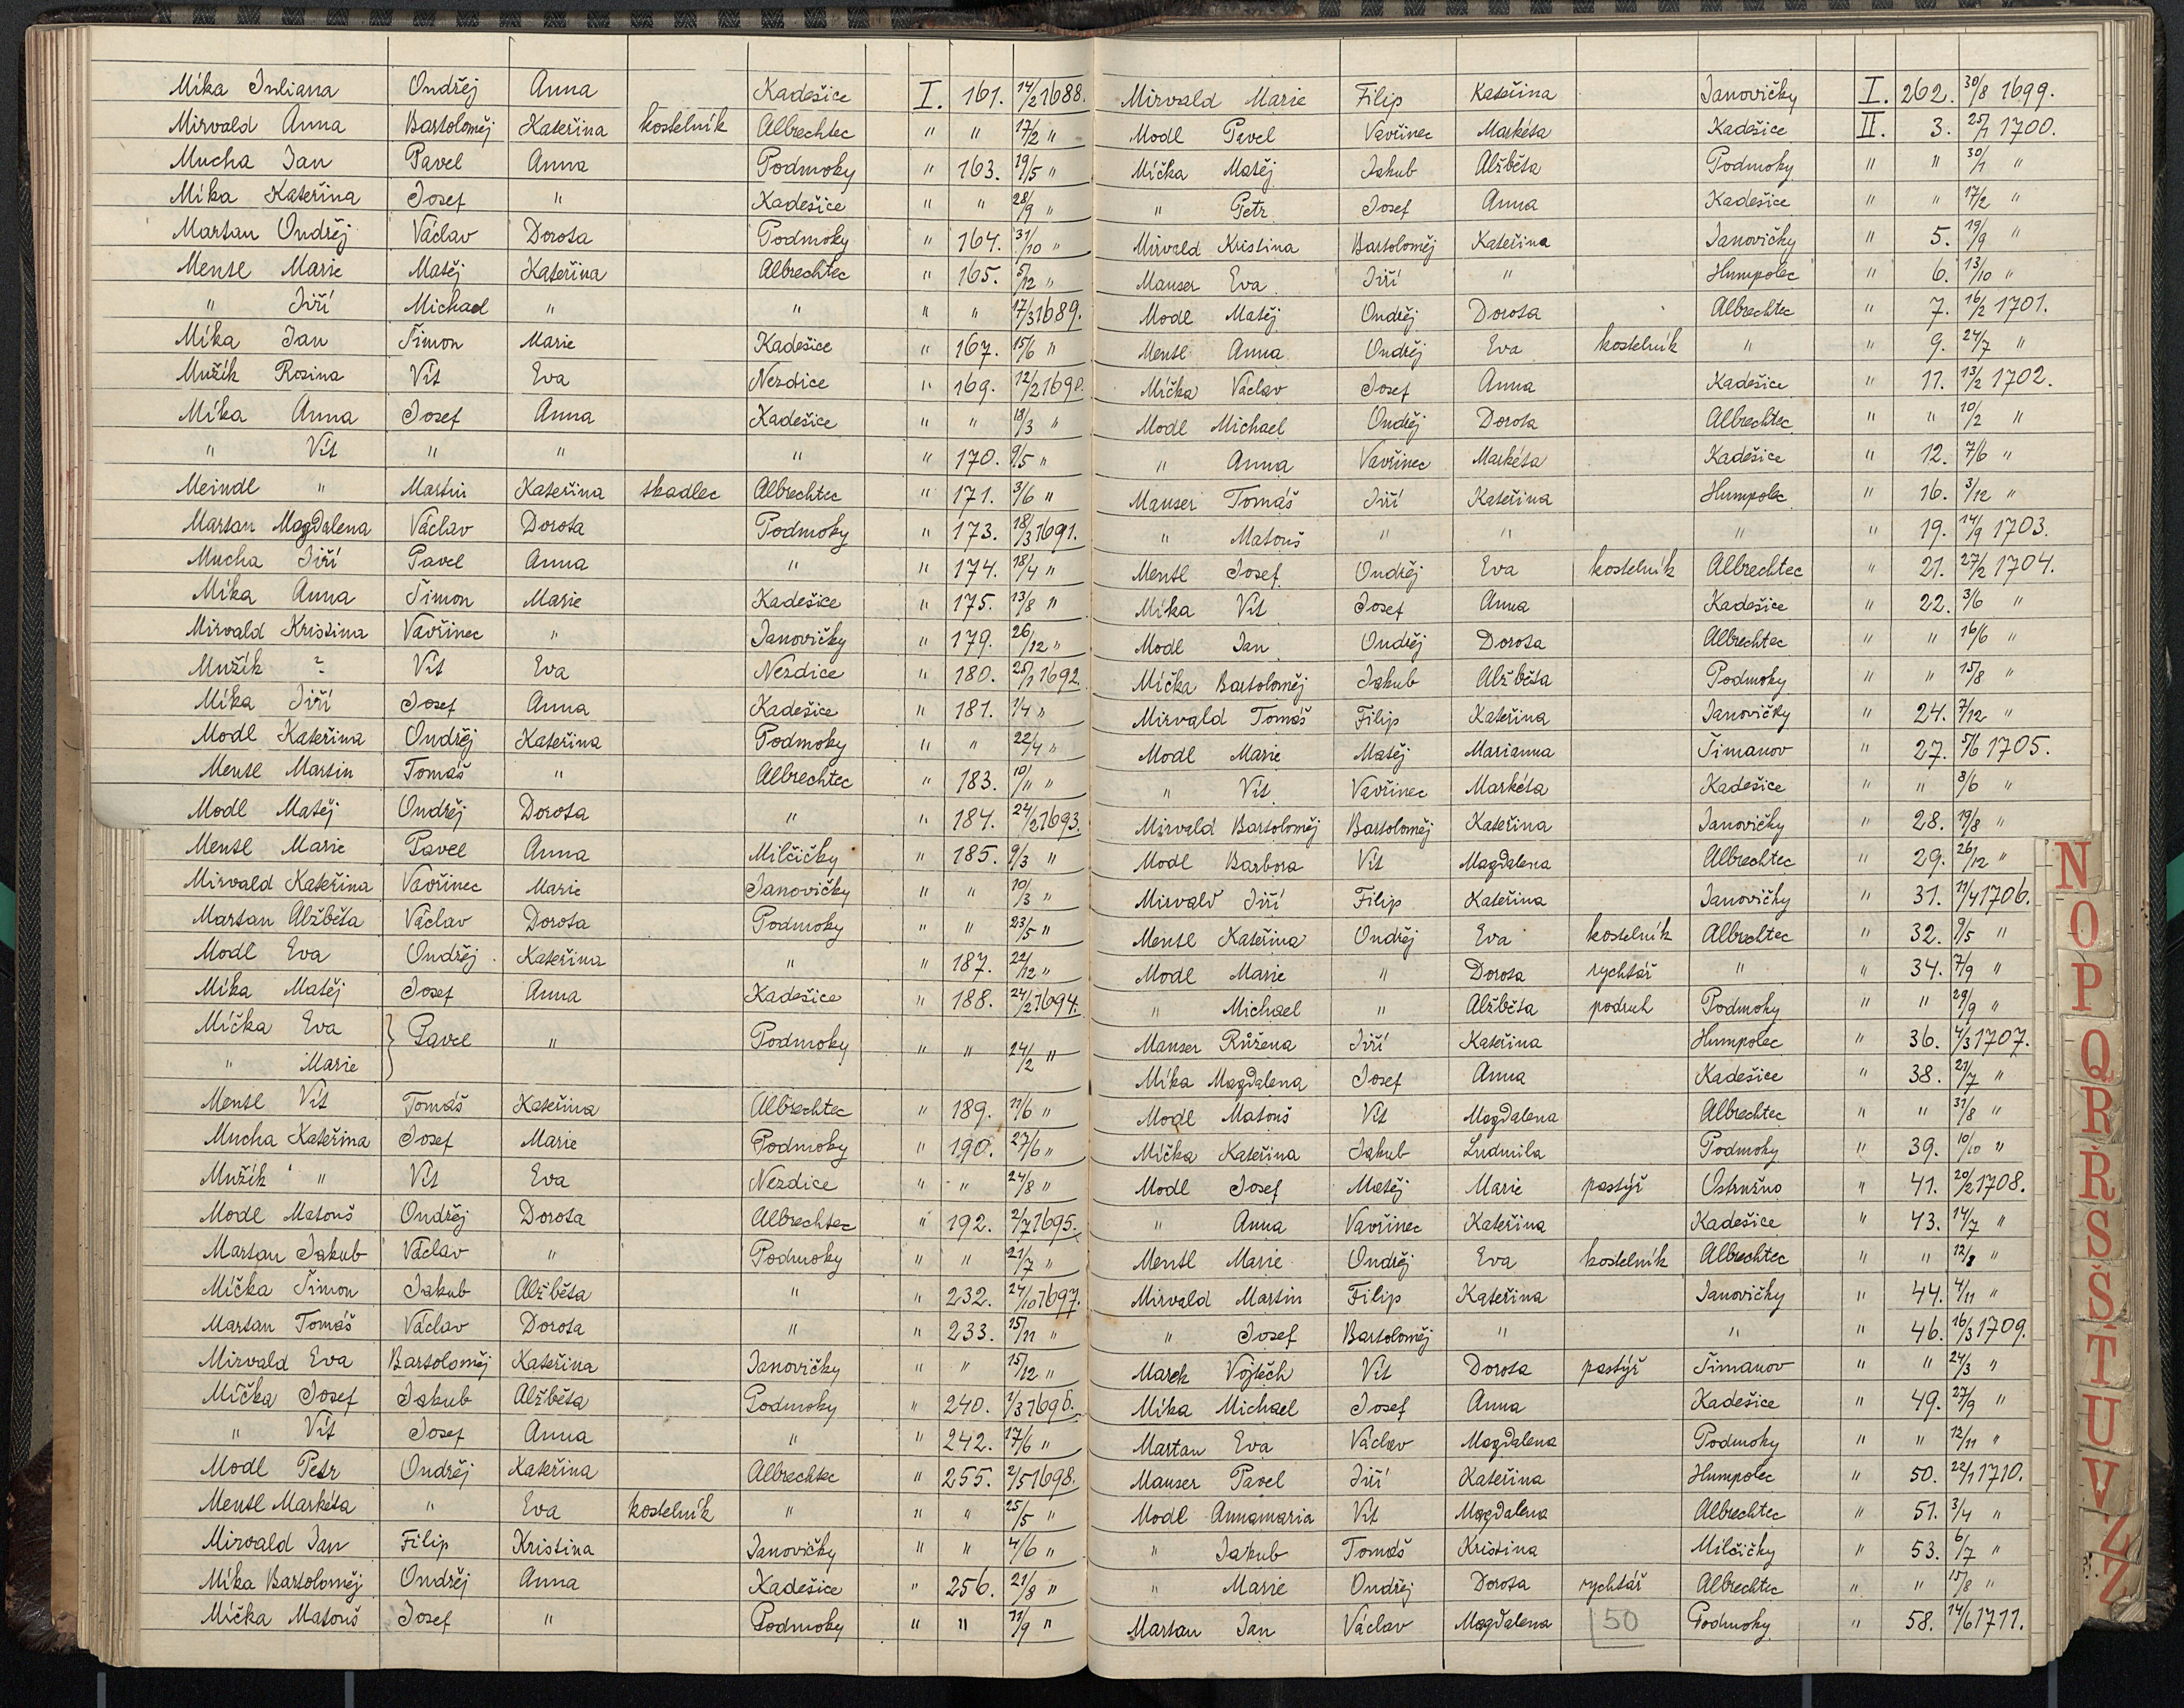 Míka Juliana Ondřej Anna Kadešice I. 161. 14/2 1688.
Mirvald Anna Bartoloměj Kateřina kostelník Albrechtec " " 17/2 "
Mucha Jan Pavel Anna Podmoky " 163. 19/5 "
Míka Kateřina Josef " Kadešice " " 28/9 "
Martan Ondřej Václav Dorota Podmoky " 164. 31/10 "
Mentl Marie Matěj Kateřina Albrechtec " 165. 5/12 "
" Jiří Michael " " " " 17/3 1689.
Míka Jan Šimon Marie Kadešice " 167. 15/6 "
Mužík Rosina Vít Eva Nezdice " 169. 12/2 1690.
Míka Anna Josef Anna Kadešice " " 18/3 "
" Vít " " " " 170. 9/5 "
Meindl " Martin Kateřina tkadlec Albrechtec " 171. 3/6 "
Martan Magdalena Václav Dorota Podmoky " 173. 18/3 1691.
Mucha Jiří Pavel Anna " " 174. 18/4 "
Míka Anna Šimon Marie Kadešice " 175. 13/8 "
Mirvald Kristina Vavřinec " Janovičky " 179. 26/12 "
Mužík ? Vít Eva Nezdice " 180. 25/1 1692.
Míka Jiří Josef Anna Kadešice " 181. 1/4 "
Modl Kateřina Ondřej Kateřina Podmoky " " 22/4 "
Mentl Martin Tomáš " Albrechtec " 183. 10/11 "
Modl Matěj Ondřej Dorota " " 184. 24/2 1693.
Mentl Marie Pavel Anna Milčičky " 185. 9/3 "
Mirvald Kateřina Vavřinec Marie Janovičky " " 10/3 "
Martan Alžběta Václav Dorota Podmoky " " 23/5 "
Modl Eva Ondřej Kateřina " " 187. 22/12 "
Míka Matěj Josef Anna Kadešice " 188. 24/2 1694.
Míčka Eva } Pavel " Podmoky " " 24/2 "
" Marie
Mentl Vít Tomáš Kateřina Albrechtec " 189. 11/6 "
Mucha Kateřina Josef Marie Podmoky " 190. 27/6 "
Mužík " Vít Eva Nezdice " " 24/8 "
Modl Matouš Ondřej Dorota Albrechtec " 192. 2/7 1695.
Martan Jakub Václav " Podmoky " " 21/7 "
Míčka Šimon Jakub Alžběta " " 232. 24/10 1697.
Martan Tomáš Václav Dorota " " 233. 15/11 "
Mirvald Eva Bartoloměj Kateřina Janovičky " " 15/12 "
Míčka Josef Jakub Alžběta Podmoky " 240. 1/3 1696.
" Vít Josef Anna " " 242. 17/6 "
Modl Petr Ondřej Kateřina Albrechtec " 255. 2/5 1698.
Mentl Markéta " Eva kostelník " " " 25/5 "
Mirvald Jan Filip Kristina Janovičky " " 4/6 "
Míka Bartoloměj Ondřej Anna Kadešice " 256. 21/8 "
Míčka Matouš Josef " Podmoky " " 11/9 "
Mirvald Marie Filip Kateřina Janovičky I. 262. 30/8 1699.
Modl Pavel Vavřinec Markéta Kadešice II. 3. 25/1 1700.
Míčka Matěj Jakub Alžběta Podmoky " " 30/1 "
" Petr Josef Anna Kadešice " " 17/2 "
Mirvald Kristina Bartoloměj Kateřina Janovičky " 5. 19/9 "
Mauser Eva Jiří " Humpolec " 6. 13/10 "
Modl Matěj Ondřej Dorota Albrechtec " 7. 16/2 1701.
Mentl Anna Ondřej Eva kostelník " " 9. 24/7 "
Míčka Václav Josef Anna Kadešice " 11. 13/2 1702.
Modl Michael Ondřej Dorota Albrechtec " " 10/2 "
" Anna Vavřinec Markéta Kadešice " 12. 7/6 "
Mauser Tomáš Jiří Kateřina Humpolec " 16. 3/12 "
" Matouš " " " " 19. 14/9 1703.
Mentl Josef Ondřej Eva kostelník Albrechtec " 21. 27/2 1704.
Míka Vít Josef Anna Kadešice " 22. 3/6 "
Modl Jan Ondřej Dorota Albrechtec " " 16/6 "
Míčka Bartoloměj Jakub Alžběta Podmoky " " 15/8 "
Mirvald Tomáš Filip Kateřina Janovičky " 24. 7/12 "
Modl Marie Matěj Marianna Šimanov " 27. 5/6 1705.
" Vít Vavřinec Markéta Kadešice " " 8/6 "
Mirvald Bartoloměj Bartoloměj Kateřina Janovičky " 28. 19/8 "
Modl Barbora Vít Magdalena Albrechtec " 29. 26/12 "
Mirvald Jiří Filip Kateřina Janovičky " 31. 11/4 1706.
Mentl Kateřina Ondřej Eva kostelník Albrechtec " 32. 9/5 "
Modl Marie " Dorota rychtář " " 34. 7/9 "
" Michael " Alžběta podruh Podmoky " " 29/9 "
Mauser Růžena Jiří Kateřina Humpolec " 36. 4/3 1707.
Míka Magdalena Josef Anna Kadešice " 38. 21/7 "
Modl Matouš Vít Magdalena Albrechtec " " 31/8 "
Míčka Kateřina Jakub Ludmila Podmoky " 39. 10/10 "
Modl Josef Matěj Marie pastýř Ostružno " 41. 20/2 1708.
" Anna Vavřinec Kateřina Kadešice " 43. 14/7 "
Mentl Marie Ondřej Eva kostelník Albrechtec " " 12/8 "
Mirvald Martin Filip Kateřina Janovičky " 44. 4/11 "
" Josef Bartoloměj " " " 46. 16/3 1709.
Marek Vojtěch Vít Dorota pastýř Šimanov " " 24/3 "
Míka Michael Josef Anna Kadešice " 49. 27/9 "
Martan Eva Václav Magdalena Podmoky " " 12/11 "
Mauser Pavel Jiří Kateřina Humpolec " 50. 22/1 1710.
Modl Annamaria Vít Magdalena Albrechtec " 51. 3/4 "
" Jakub Tomáš Kristina Milčičky " 53. 6/7 "
" Marie Ondřej Dorota rychtář Albrechtec " " 15/8 "
Martan Jan Václav Magdalena 50 Podmoky " 58. 14/6 1711.
N
O
P
Q
R
Ř
S
Š
T
U
V
Z
Ž